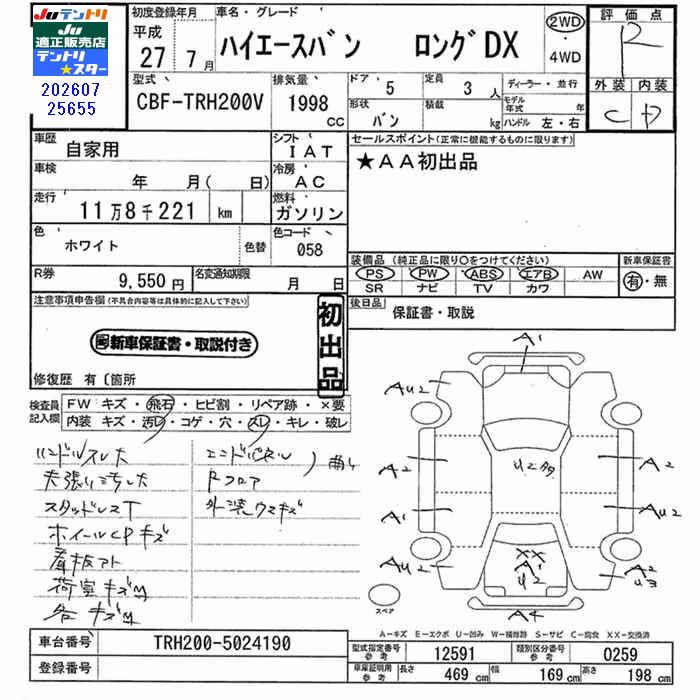 Juテントリ
Ju
適正販売店
テントリ
★スター
202607
25655
初度登録年月
平成
27年 7月
車名・グレード
ハイエースバン ロングDX
2WD
・
4WD
評価点
R
外装 内装
C 内
型式
CBF-TRH200V
排気量
1998
cc
ドア
5
定員
3人
形状
バン
積載
kg
ディーラー・並行
モデル年式 年
ハンドル 左・右
車歴
自家用
シフト
IAT
セールスポイント(正常に機能するものに限ります)
★AA初出品
車検
年 月( 日)
冷房
AC
走行
11万8千221 km
燃料
ガソリン
色
ホワイト
色替
色コード
058
装備品(純正品に限り○をつけてください)
PS PW ABS エアB AW
SR ナビ TV カワ
新車保証書
有・無
R券
9,550円
名変通知期限
月 日
後日品
保証書・取説
注意事項申告欄(不具合内容等は具体的に記入して下さい)
初出品
新車保証書・取説付き
修復歴 有〔箇所
検査員
記入欄
FW キズ・飛石・ヒビ割・リペア跡・×要
内装 キズ・汚レ・コゲ・穴・スレ・キレ・破レ
ハンドルスレ大
天張り汚れ大
スタッドレスT
ホイールCPキズ
看板アト
荷室キズM
各キズM
エンドパネル
Rフロア
曲り
外装ウスキズ
A1
AU2
AU2
A2
U2多
A2
A1
AU2
AU2
XX
A1
U2
A2
A4
スペア
A-キズ E-エクボ U-凹み W-補修跡 S-サビ C-腐食 XX-交換済
車台番号
TRH200-5024190
登録番号
型式指定番号
参考
12591
類別区分番号
参考
0259
車庫証明用
参考
長さ
469 cm
幅
169 cm
高さ
198 cm